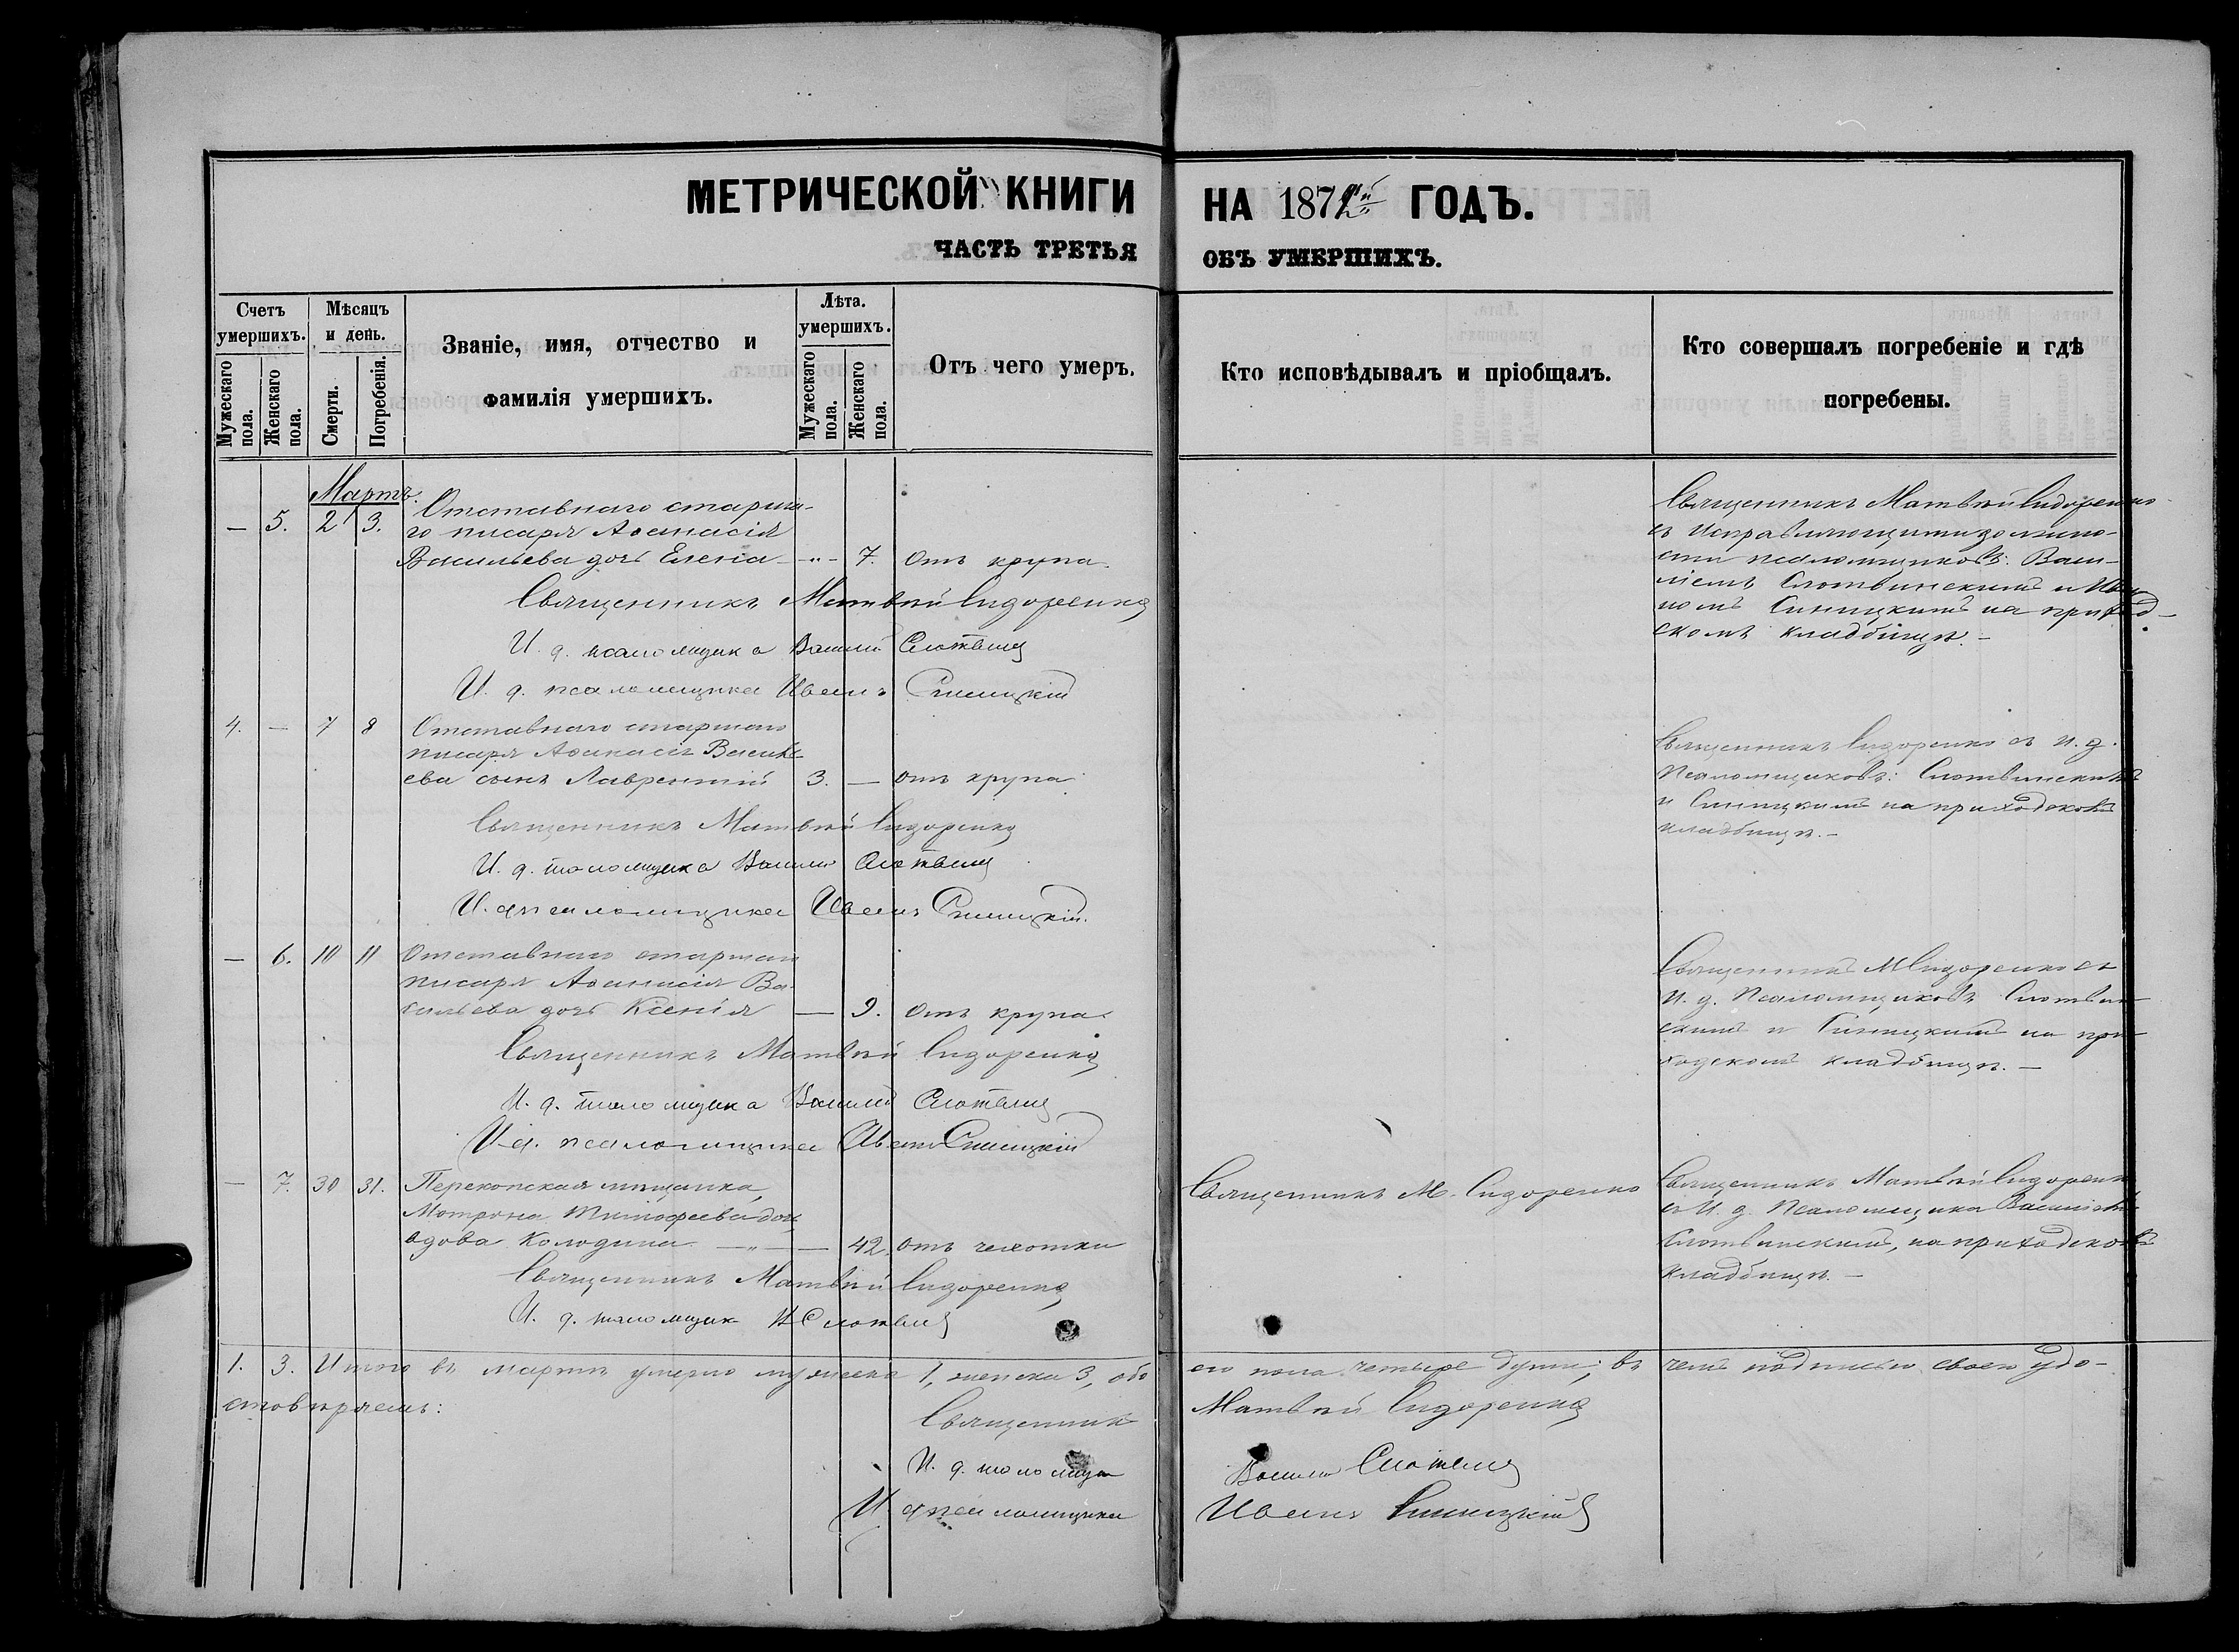 МЕТРИЧЕСКОЙ КНИГИ НА 1872й ГОДЪ.
ЧАСТЬ ТРЕТЬЯ ОБЪ УМЕРШИХЪ.
Счетъ умершихъ.
Мужескаго пола.
Женскаго пола.
Мѣсяцъ и день.
Смерти.
Погребенія.
Званіе, имя, отчество и
фамилія умершихъ.
Лѣта.
умершихъ.
Мужескаго пола.
Женскаго пола.
Отъ чего умеръ.
Кто исповѣдывалъ и пріобщалъ.
Кто совершалъ погребеніе и гдѣ
погребены.
Мартъ.
— 5. 2 3. Отставнаго старша-
го писаря Аѳанасія
Васильева дочь Елена — „ — 7. отъ крупа.
Священникъ Матвѣй Сидоренко
И. д. псаломщика Василій
И. д. псаломщика Иванъ Синицкій
Священникъ Матвѣй Сидоренко
съ исправляющими должно-
сти псаломщиковъ: Васи-
ліемъ Слотвинскимъ и Ива-
номъ Синицкимъ на приход-
скомъ кладбищѣ. —
4. — 7 8 Отставнаго старшаго
писаря Аѳанасія Василь-
ева сынъ Лаврентій 3. — отъ крупа.
Священникъ Матвѣй Сидоренко
И. д. псаломщика Василій
И. д. псаломщика Иванъ Синицкій.
Священникъ Сидоренко съ и. д.
псаломщиковъ: Слотвинскимъ
и Синицкимъ на приходскомъ
кладбищѣ. —
— 6. 10 11 Отставнаго старшаго
писаря Аѳанасія Ва-
сильева дочь Ксенія — 9. отъ крупа.
Священникъ Матвѣй Сидоренко
И. д. псаломщика Василій
И. д. псаломщика Иванъ Синицкій
Священникъ М Сидоренко съ
И. д. псаломщиковъ Слотвин-
скимъ и Синицкимъ на при-
ходскомъ кладбищѣ. —
— 7. 30 31. Перекопская мѣщанка,
Мотрона Тимофеева дочь,
вдова Колодина — „ — 42. отъ чахотки
Священникъ Матвѣй Сидоренко
И. д. псаломщик
Священникъ М. Сидоренко
Священникъ Матвѣй Сидоренко
съ И. д. псаломщика Василіемъ
Слотвинскимъ, на приходскомъ
кладбищѣ. —
1. 3. Итого въ мартѣ умерло мужеска 1, женска 3, обо
его пола четыре души; въ чемъ подписью своею удо-
стовѣряемъ:
Священникъ Матвѣй Сидоренко
И. д. псаломщи Василій
И. д. псаломщика Иванъ Синицкій